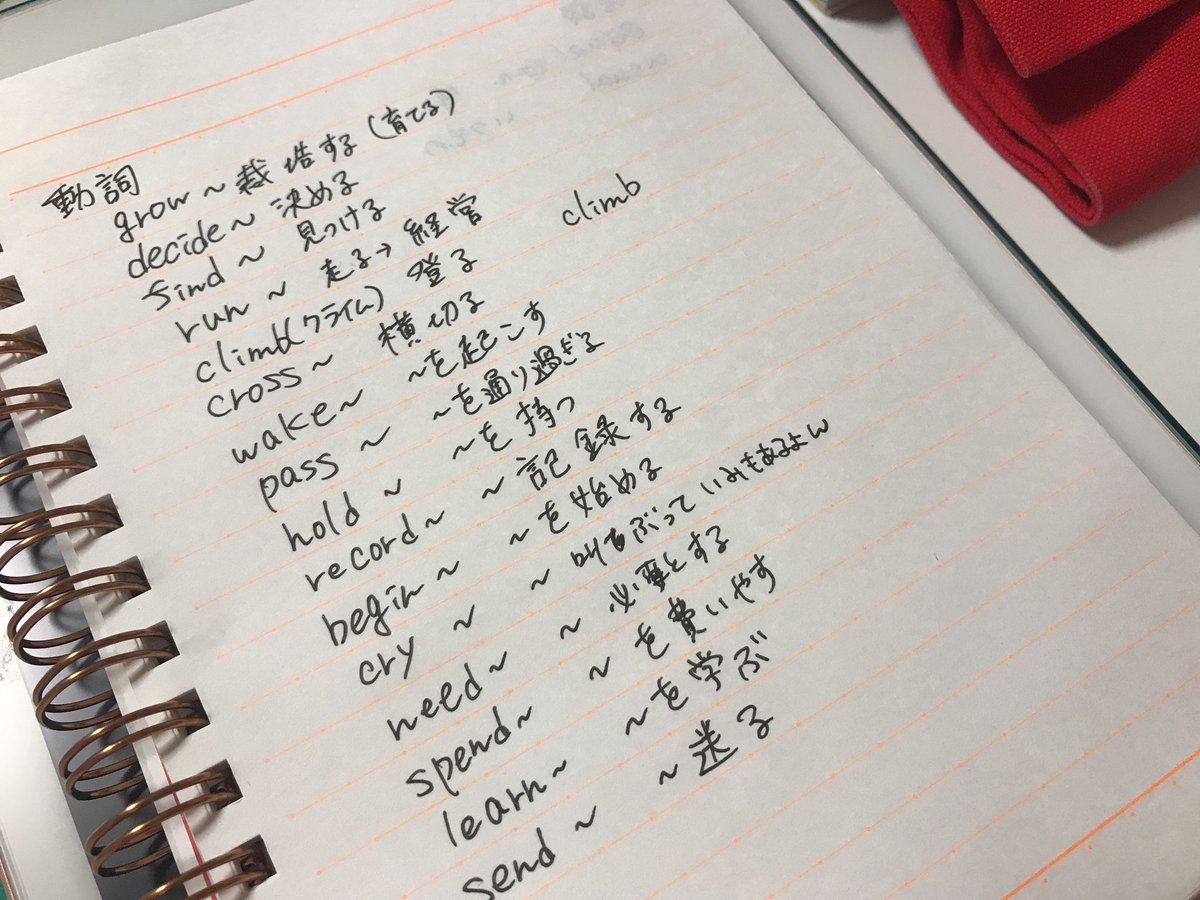 動詞
grow ~ 栽培する(育てる)
decide ~ 決める
find ~ 見つける
run ~ 走る→経営
climb(クライム) 登る climb
cross ~ 横切る
wake ~ ~を起こす
pass ~ ~を通り過ぎる
hold ~ ~を持つ
record ~ ~記録する
begin ~ ~を始める
cry ~ ~叫ぶって いみもあるよん
need ~ ~必要とする
spend ~ ~を費いやす
learn ~ ~を学ぶ
send ~ ~送る